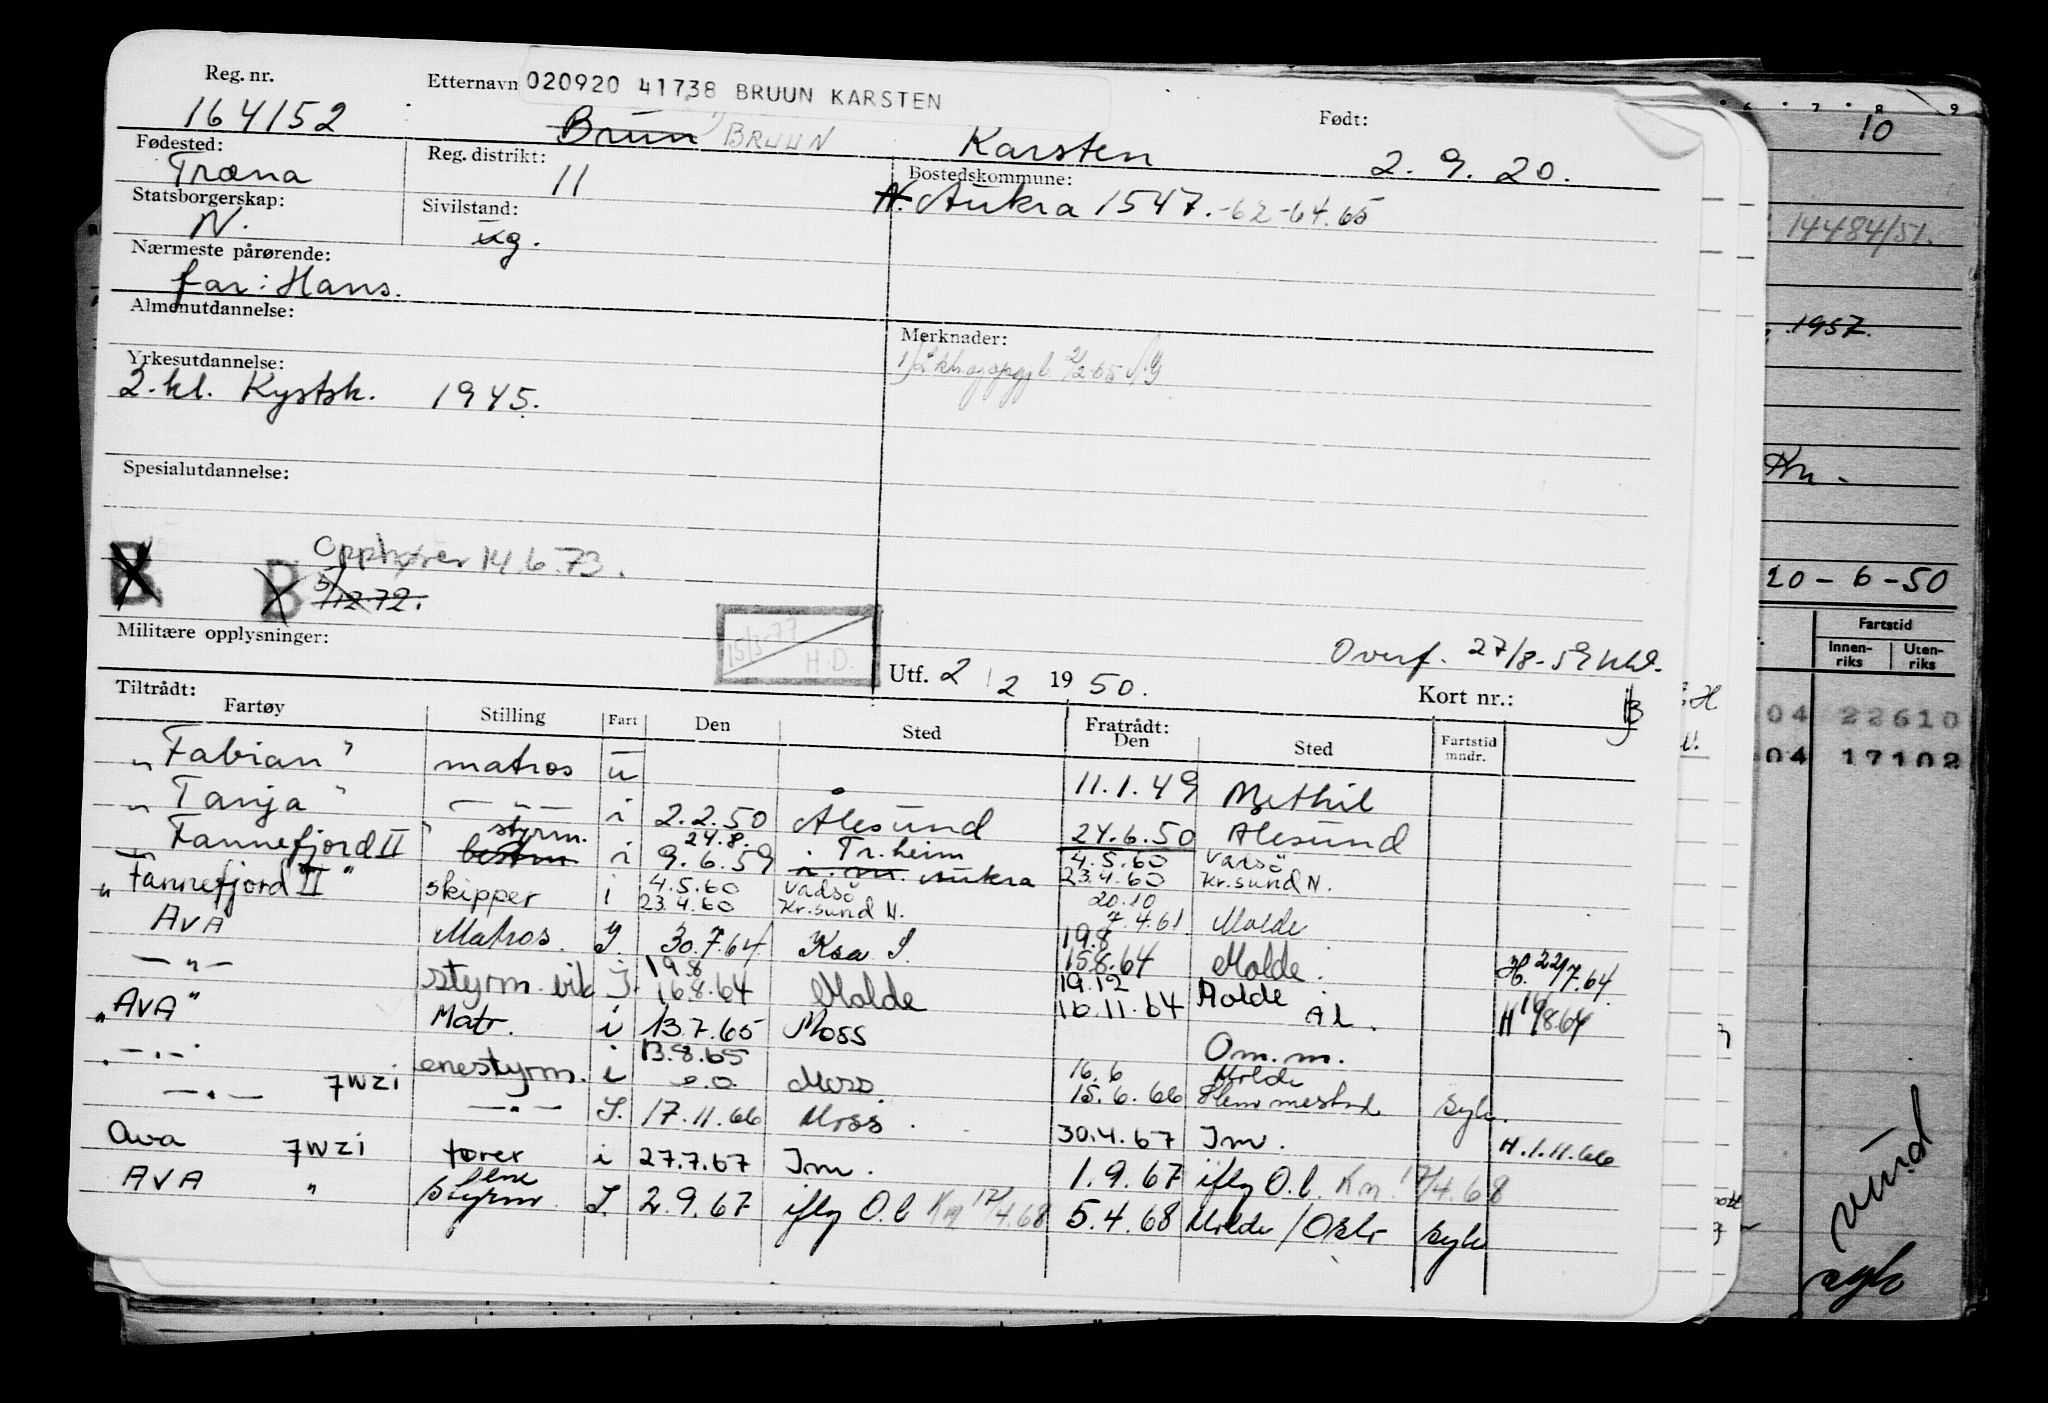 Reg. nr. Etternavn 020920 41738 BRUUN KARSTEN Født:
164152 Brun 1) BRUUN Karsten 2. 9. 20.
Fødested: Reg. distrikt: Bostedskommune:
Træna 11 N. Aukra 1547. -62 -64. 65
Statsborgerskap: Sivilstand:
N. ug.
Nærmeste pårørende:
far: Hans.
Almenutdannelse: Merknader:
Yrkesutdannelse:
2. kl. Kystsk. 1945.
Spesialutdannelse:
Opphører 14.6.73.
B B 5/12-72.
15/3-77
H.D.
Militære opplysninger:
Overf. 27/8-59
Utf. 2/2 1950. Kort nr.:
Tiltrådt: Fratrådt:
Fartøy Stilling Fart Den Sted Den Sted Fartstid mndr.
"Fabian" matros u 11.1.49 Methil
"Tanja" — " — i 2.2.50 Ålesund 24.6.50 Ålesund
styrm. 24.8. Tr.heim 4.5.60 Vadsö
"Fannefjord II" bestm i 9.6.59 Aukra 23.4.60 Kr.sund N.
4.5.60 Vadsö 20.10
"Fannefjord II" skipper i 23.4.60 Kr.sund N. 7.4.61 Molde
19.8
AVA Matros. 30.7.64 Ksa 15.8.64 Molde. H. 22/7.64
19.8 19.12 Molde
— " — styrm. vik 16.8.64 Molde 16.11.64 Ål. H 19/8 64
"AVA" Matr. i 13.7.65 Moss Om.m.
13.8.65 16.6 Molde
— " — enestyrm. i Moss. 15.6.66 Slemmestad syk.
— " — 7WZI — " — I. 17.11.66 Moss. 30.4.67 Im. H.1.11.66
Ava 7WZI fører i 27.7.67 Im. 1.9.67 ifly O.l. Kn. 17/4.68
AVA " Ene styrm. I. 2.9.67 ifly O.l Kn 17/4.68 5.4.68 Molde/Oslo syk
6 7 8 9
10
14484/51.
1957.
Kn.
20-6-50
Fartstid
Innen-riks Uten-riks
04 22610
04 17102